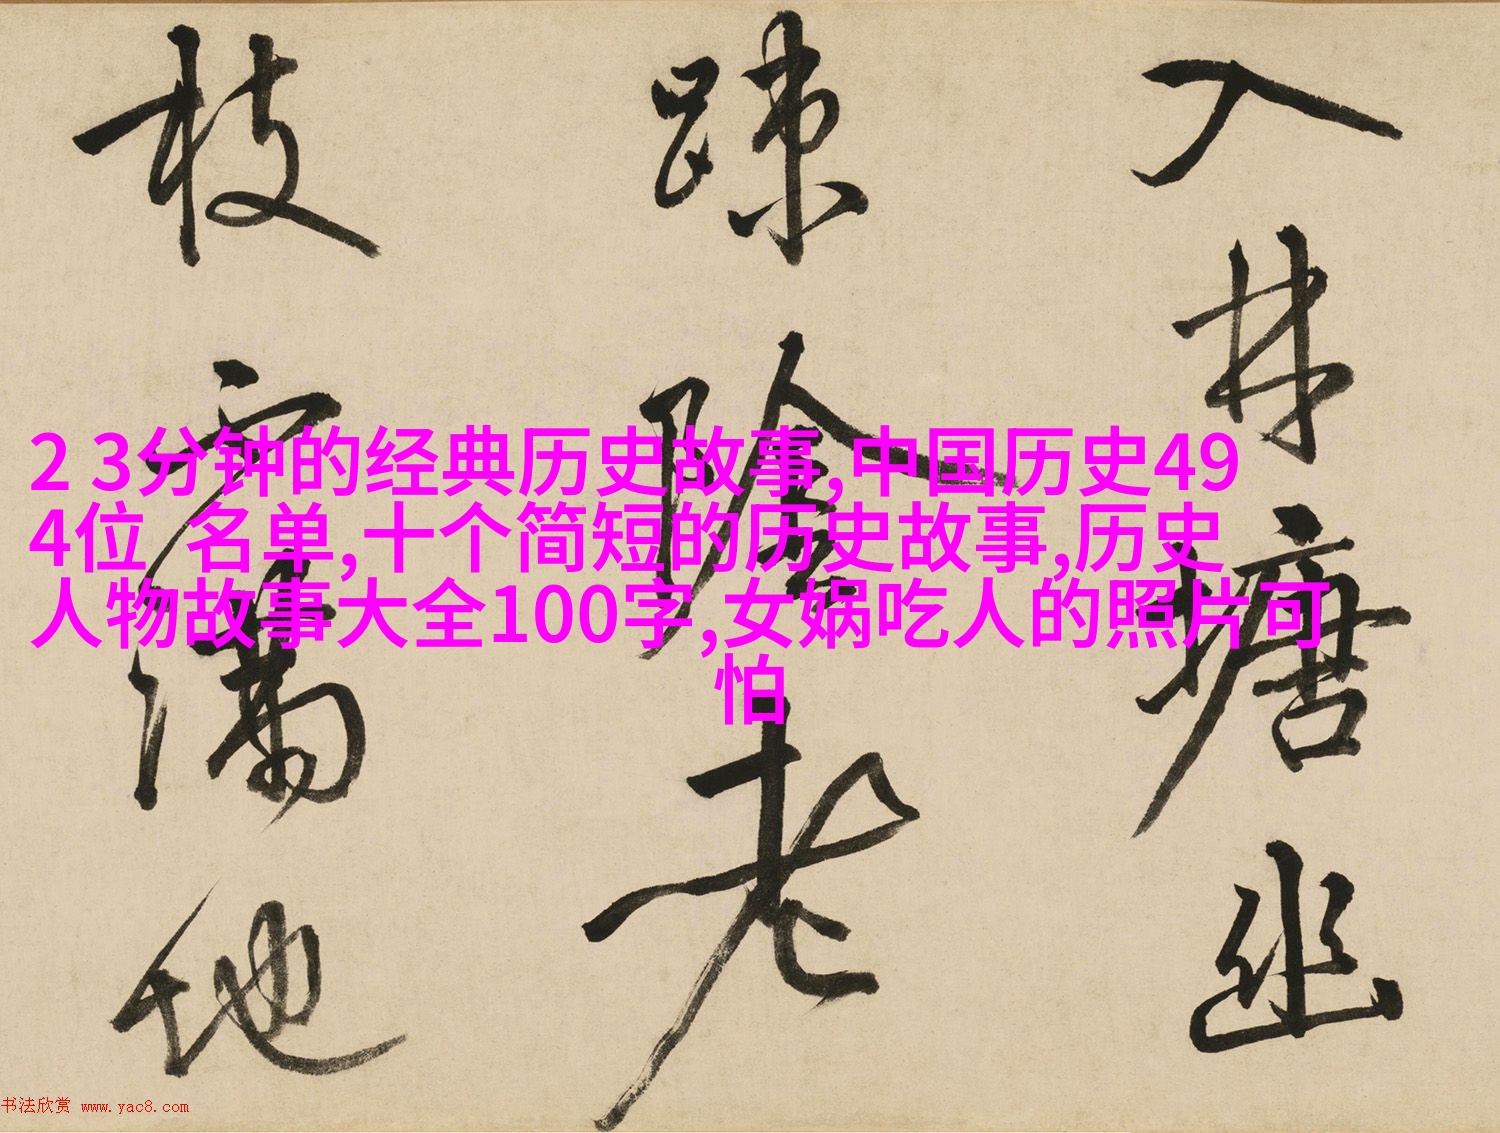 入林塘幽
疎陰老
枝滿地
2 3分钟的经典历史故事,中国历史49
4位 名单,十个简短的历史故事,历史
人物故事大全100字,女娲吃人的照片可
怕
书法欣赏 www.yac8.com